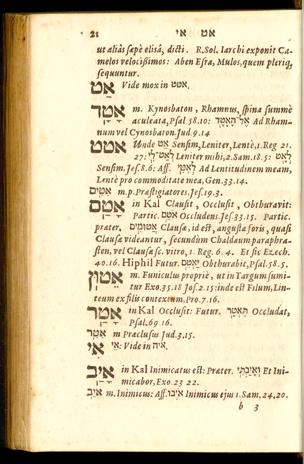 21 אט אי
ut aliàs sæpè elisâ, dicti. R. Sol. Iarchi exponit Ca-
melos velocissimos: Aben Esra, Mulos, quem pleriq;
sequuntur.
אַט Vide mox in אטט
אָטָד m. Kynosbaton, Rhamnus, spina summè
aculeata, Psal 58.10: אֶל־הָאָטָד Ad Rham-
num vel Cynosbaton. Jud. 9.14
אטט Unde אַט Sensim, Leniter, Lentè, 1. Reg 21.
27: לָאַט־לִי Leniter mihi, 2. Sam. 18.5: לְאַט
Sensim. Jes. 8.6: Aff. לְאִטִּי Ad Lentitudinem meam,
Lentè pro commoditate mea, Gen. 33.14.
אִטִּים m. p. Præstigiatores. Jes. 19.3.
אָטַם in Kal Clausit, Occlusit, Obthuravit:
Partic. אֹטֵם Occludens. Jes. 33.15. Partic.
præter. אֲטוּמִים Clausæ, id est, angustæ foris, quasi
Clausæ videantur, secundùm Chaldæum paraphra-
sten, vel Clausæ sc. vitro, 1. Reg. 6.4. Et sic Ezech.
40.16: Hiphil Futur. יַאְטֵם Obthurabit, Psal. 58.5.
אֵטוּן m. Funiculus propriè, ut in Targum sumi-
tur Exo. 35.18 Jos 2.15: inde est Filum, Lin-
teum ex filis contextum, Pro. 7.16.
אָטַר in Kal Occlusit: Futur. תֶּאְטַר Occludat,
Psal. 69 16.
אִטֵּר m Præclusus Jud. 3.15.
אֵי אִי: Vide in איה.
אָיַב in Kal Inimicatus est: Præter. וְאָיַבְתִּי Et Ini-
micabor, Exo. 23 22.
אֹיֵב m. Inimicus: Aff. אֹיְבוֹ Inimicus ejus 1. Sam. 24, 20.
b 3